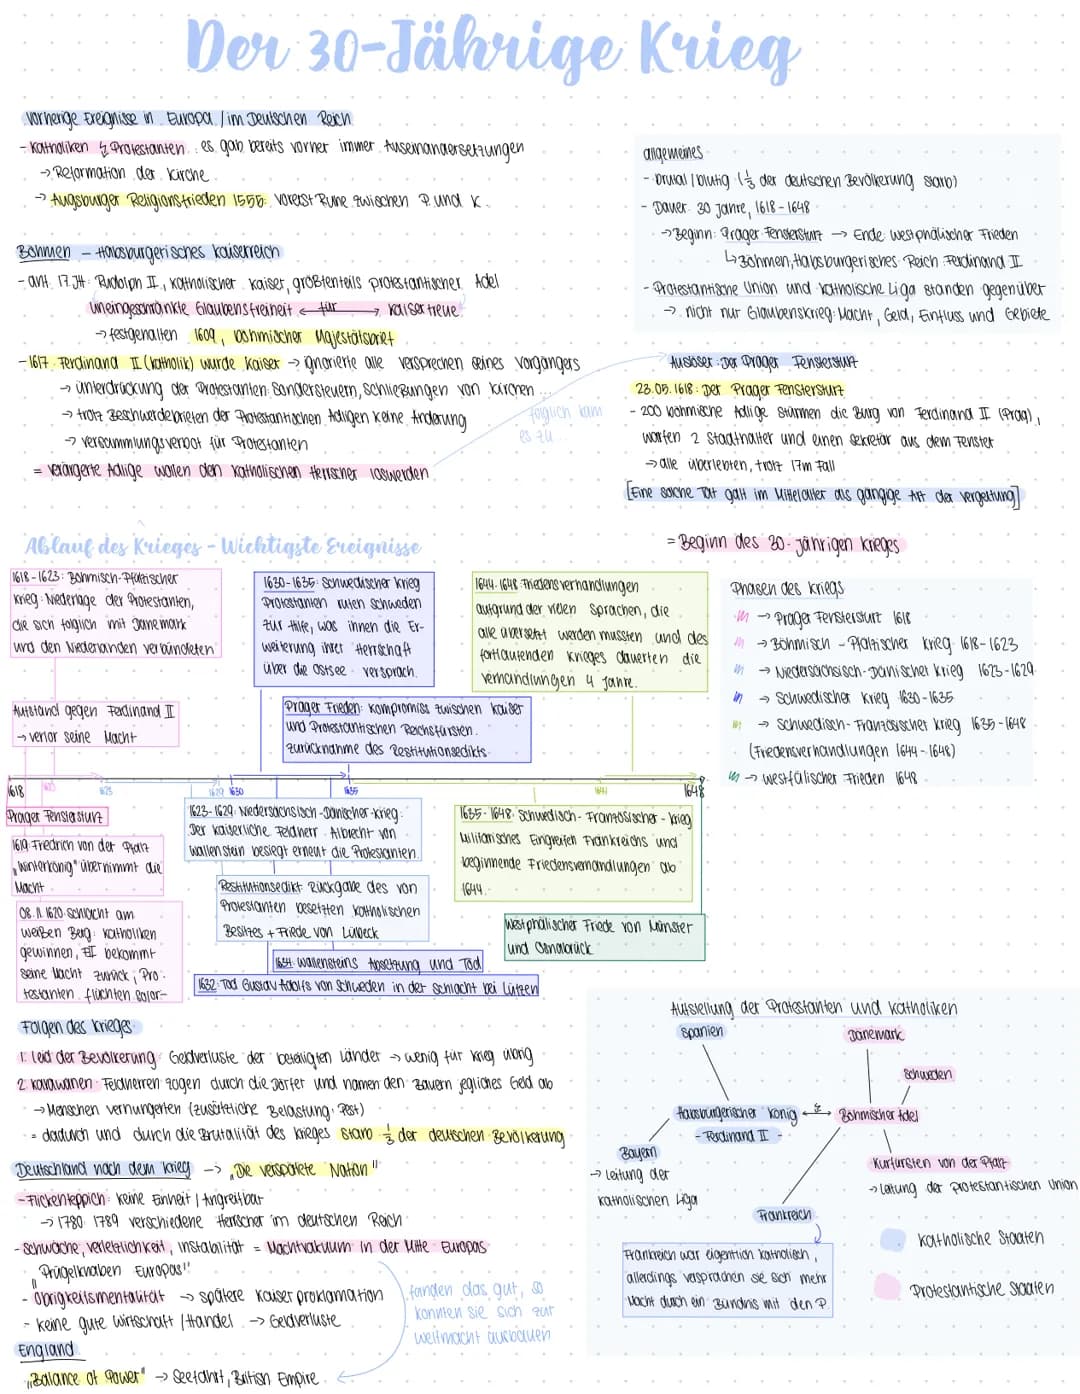 Der 30-Jährige Krieg
Vorherige Ereignisse in Europa / im Deutschen Reich
- Katholiken ↯ Protestanten: es gab bereits vorher immer Auseinandersetzungen
→ Reformation der Kirche
→ Augsburger Religionsfrieden 1555: Vorerst Ruhe zwischen P. und K.
Böhmen – Habsburgerisches Kaiserreich
- anf. 17. JH: Rudolph II., katholischer Kaiser, größtenteils protestantischer Adel
uneingeschränkte Glaubensfreiheit ← für → Kaisertreue
→ festgehalten 1609, böhmischer Majestätsbrief
- 1617: Ferdinand II (katholik) wurde Kaiser → ignorierte alle Versprechen seines Vorgängers
→ unterdrückung der Protestanten: Sondersteuern, Schließungen von Kirchen...
→ trotz Beschwerdebriefen der Protestantischen Adligen keine Änderung
→ Versammlungsverbot für Protestanten
= Verärgerte Adlige wollen den katholischen Herrscher loswerden
folglich kam
es zu...
allgemeines
- brutal / blutig (⅓ der deutschen Bevölkerung starb)
- Dauer: 30 Jahre, 1618-1648
→ Beginn: Prager Fenstersturz → Ende: Westphälischer Frieden
↳ Böhmen, Habsburgerisches Reich Ferdinand II.
- Protestantische Union und katholische Liga standen gegenüber
→ nicht nur Glaubenskrieg: Macht, Geld, Einfluss und Gebiete
Auslöser: Der Prager Fenstersturz
23.05.1618: Der Prager Fenstersturz
- 200 böhmische Adlige stürmen die Burg von Ferdinand II (Prag),
warfen 2 Stadthalter und einen Sekretär aus dem Fenster
→ alle überlebten, trotz 17m Fall
[Eine solche Tat galt im Mittelalter als gängige Art der Vergeltung]
= Beginn des 30-jährigen Krieges
Ablauf des Krieges - Wichtigste Ereignisse
1618-1623: Böhmisch-Pfälzischer
Krieg: Niederlage der Protestanten,
die sich folglich mit Dänemark
und den Niederlanden verbündeten
Aufstand gegen Ferdinand II
→ verlor seine Macht
1630-1635: Schwedischer Krieg
Protestanten rufen Schweden
zur Hilfe, was ihnen die Er-
weiterung ihrer Herrschaft
über die Ostsee versprach.
Prager Frieden: Kompromiss zwischen Kaiser
und Protestantischen Reichsfürsten.
Zurücknahme des Restitutionsedikts.
1644-1648: Friedensverhandlungen
aufgrund der vielen Sprachen, die
alle übersetzt werden mussten und des
fortlaufenden Krieges dauerten die
Verhandlungen 4 Jahre.
Phasen des Kriegs
→ Prager Fenstersturz 1618
→ Böhmisch-Pfälzischer Krieg 1618-1623
→ Niedersächsisch-Dänischer Krieg 1623-1629
→ Schwedischer Krieg 1630-1635
→ Schwedisch-Französischer Krieg 1635-1648
(Friedensverhandlungen 1644-1648)
→ Westfälischer Frieden 1648
1618 1623 1629 1630 1635 1644 1648
Prager Fenstersturz
1619: Friedrich von der Pfalz
„Winterkönig" übernimmt die
Macht
08.11.1620: Schlacht am
weißen Berg: Katholiken
gewinnen, FII bekommt
seine Macht zurück, Pro-
testanten flüchten sofor-
1623-1629: Niedersächsisch-Dänischer-Krieg:
Der kaiserliche Feldherr Albrecht von
Wallenstein besiegt erneut die Protestanten.
Restitutionsedikt: Rückgabe des von
Protestanten besetzten katholischen
Besitzes + Friede von Lübeck
1634: Wallensteins Absetzung und Tod
1632: Tod Gustav Adolfs von Schweden in der Schlacht bei Lützen
1635-1648: Schwedisch-Französischer-Krieg
Militärisches Eingreifen Frankreichs und
beginnende Friedensverhandlungen ab
1644.
Westphälischer Friede von Münster
und Osnabrück
Folgen des Krieges
1. Leid der Bevölkerung: Geldverluste der beteiligten Länder → wenig für Krieg übrig
2. Karawanen: Feldherren zogen durch die Dörfer und nahmen den Bauern jegliches Geld ab
→ Menschen verhungerten (zusätzliche Belastung: Pest)
= dadurch und durch die Brutalität des Krieges starb ⅓ der deutschen Bevölkerung
Deutschland nach dem Krieg → „Die verspätete Nation"
- Flickenteppich: keine Einheit / Angreifbar
→ 1780 1789 verschiedene Herrscher im deutschen Reich
- schwäche, verletzlichkeit, instabilität = Machtvakuum in der Mitte Europas
„Prügelknaben Europas"
- Obrigkeitsmentalität → spätere Kaiserproklamation
- keine gute Wirtschaft / Handel → Geldverluste
England
„Balance of Power" → Seefahrt, British Empire
fanden das gut, so
konnten sie sich zur
Weltmacht ausbauen
Aufstellung der Protestanten und Katholiken
Spanien
Dänemark
Schweden
Habsburgerischer König ↯ Böhmischer Adel
- Ferdinand II -
Bayern
→ Leitung der
katholischen Liga
Kurfürsten von der Pfalz
→ Leitung der Protestantischen Union
Frankreich
Frankreich war eigentlich katholisch,
allerdings versprachen sie sich mehr
Macht durch ein Bündnis mit den P.
katholische Staaten
Protestantische Staaten